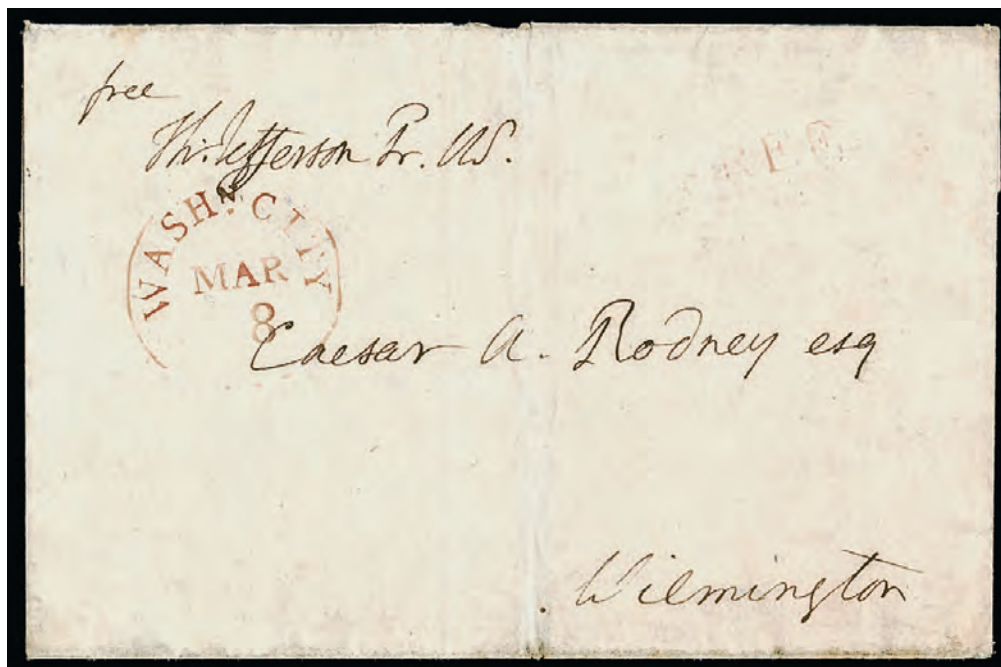 free
Th: Jefferson Pr. US.
FREE
WASHN. CITY
MAR
8
Caesar A. Rodney esq
Wilmington